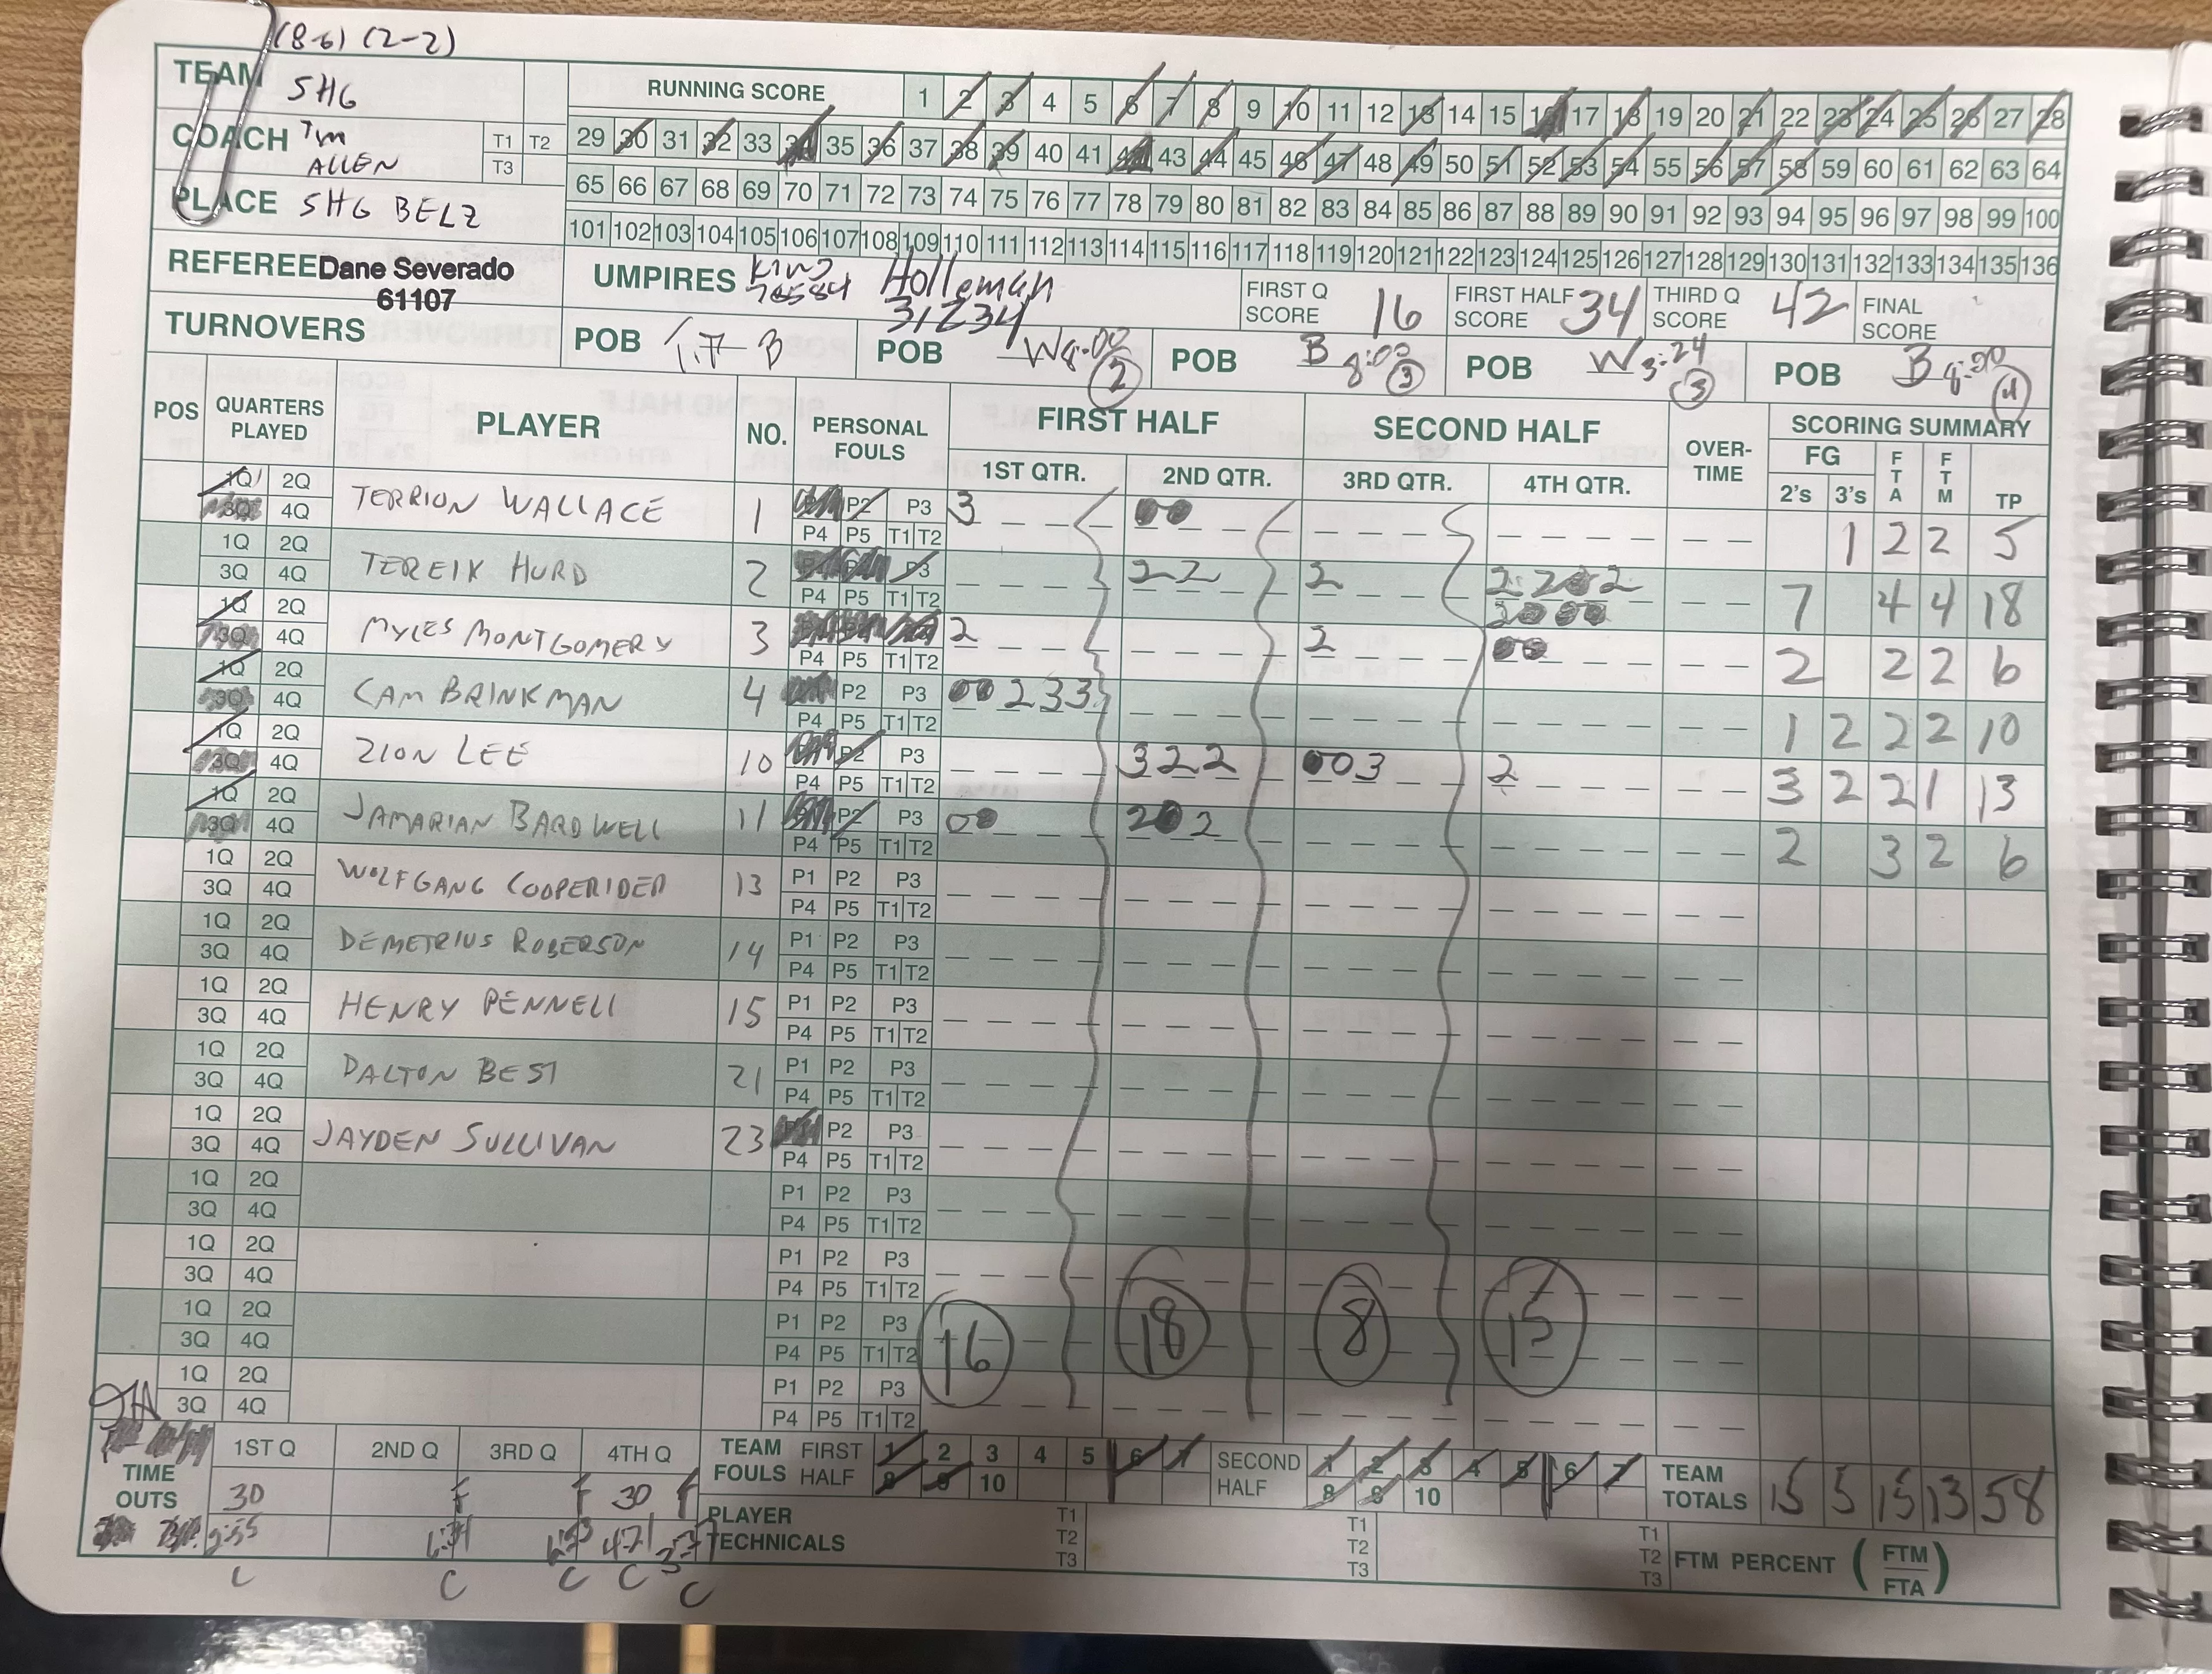 (8-6) (2-2)
TEAM SHG
COACH Tim ALLEN
T1 T2
T3
PLACE SHG BELZ
REFEREE Dane Severado 61107
UMPIRES King Holleman 31234
RUNNING SCORE 1 2 3 4 5 6 7 8 9 10 11 12 13 14 15 16 17 18 19 20 21 22 23 24 25 26 27 28
29 30 31 32 33 34 35 36 37 38 39 40 41 42 43 44 45 46 47 48 49 50 51 52 53 54 55 56 57 58 59 60 61 62 63 64
65 66 67 68 69 70 71 72 73 74 75 76 77 78 79 80 81 82 83 84 85 86 87 88 89 90 91 92 93 94 95 96 97 98 99 100
101 102 103 104 105 106 107 108 109 110 111 112 113 114 115 116 117 118 119 120 121 122 123 124 125 126 127 128 129 130 131 132 133 134 135 136
FIRST Q SCORE 16 FIRST HALF SCORE 34 THIRD Q SCORE 42 FINAL SCORE
TURNOVERS POB B POB W 8:00 2 POB B 8:00 3 POB W 3:24 3 POB B 8:00 4
POS QUARTERS PLAYED PLAYER NO. PERSONAL FOULS FIRST HALF SECOND HALF OVER-TIME SCORING SUMMARY
1ST QTR. 2ND QTR. 3RD QTR. 4TH QTR. FG 2's 3's FTA FTM TP
1Q 2Q 3Q 4Q TERRION WALLACE 1 P2 P3 P4 P5 T1 T2 3 00 1 2 2 5
1Q 2Q 3Q 4Q TEREIK HURD 2 P3 P4 P5 T1 T2 22 2 7 4 4 18
1Q 2Q 3Q 4Q MYLES MONTGOMERY 3 P4 P5 T1 T2 2 2 00 2 2 2 6
1Q 2Q 3Q 4Q CAM BRINKMAN 4 P2 P3 P4 P5 T1 T2 00233 1 2 2 2 10
1Q 2Q 3Q 4Q ZION LEE 10 P2 P3 P4 P5 T1 T2 322 003 2 3 2 2 1 13
1Q 2Q 3Q 4Q JAMARIAN BARDWELL 11 P2 P3 P4 P5 T1 T2 00 202 2 3 2 6
1Q 2Q 3Q 4Q WOLFGANG COOPERIDER 13 P1 P2 P3 P4 P5 T1 T2
1Q 2Q 3Q 4Q DEMETRIUS ROBERSON 14 P1 P2 P3 P4 P5 T1 T2
1Q 2Q 3Q 4Q HENRY PENNELL 15 P1 P2 P3 P4 P5 T1 T2
1Q 2Q 3Q 4Q DALTON BEST 21 P1 P2 P3 P4 P5 T1 T2
1Q 2Q 3Q 4Q JAYDEN SULLIVAN 23 P2 P3 P4 P5 T1 T2
1Q 2Q 3Q 4Q P1 P2 P3 P4 P5 T1 T2
1Q 2Q 3Q 4Q P1 P2 P3 P4 P5 T1 T2
1Q 2Q 3Q 4Q P1 P2 P3 P4 P5 T1 T2
1Q 2Q 3Q 4Q P1 P2 P3 P4 P5 T1 T2
16 18 8 15
TIME OUTS 1ST Q 2ND Q 3RD Q 4TH Q
30 F F 30 F
C C C C C
TEAM FOULS FIRST HALF 1 2 3 4 5 6 7 8 9 10
SECOND HALF 1 2 3 4 5 6 7 8 9 10
TEAM TOTALS 15 5 15 13 58
PLAYER TECHNICALS T1 T2 T3 T1 T2 T3 T1 T2 T3
FTM PERCENT (FTM/FTA)